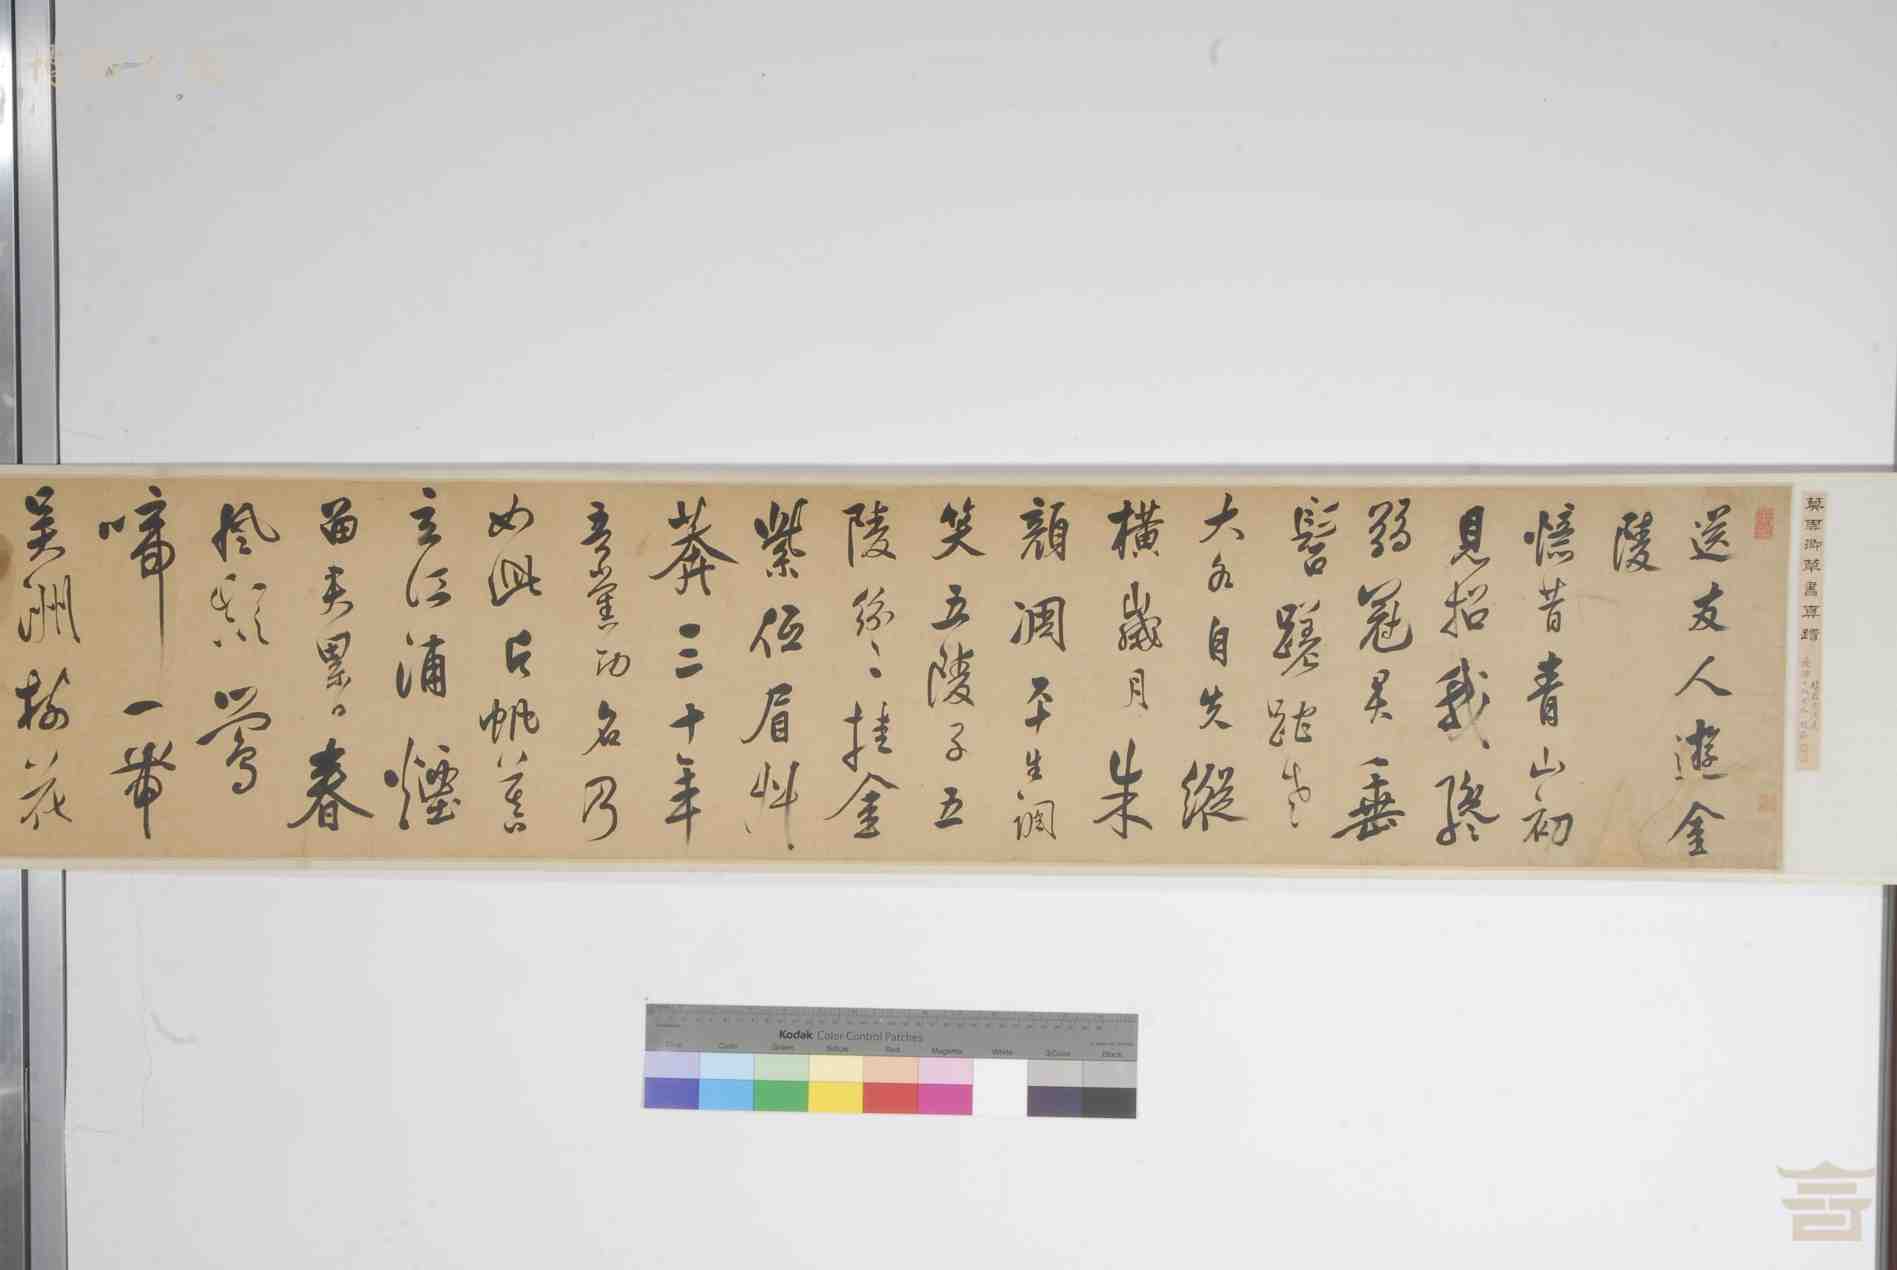 莫雲卿草書真蹟
送友人遊金
陵
憶昔青山初
見招我驂
弱冠君垂
髫蹉跎
大各自失縱
橫歲月朱
顏凋平生調
笑五陵子五
陵紛〻挂金
紫低眉
莽三十年
吾黨功名乃
如此片帆暮
立江浦煙
苗夫累〻春
風鬢鶯
啼一
吳洲拂花
Kodak Color Control Patches
Blue Cyan Green Yellow Red Magenta White 3/Color Black